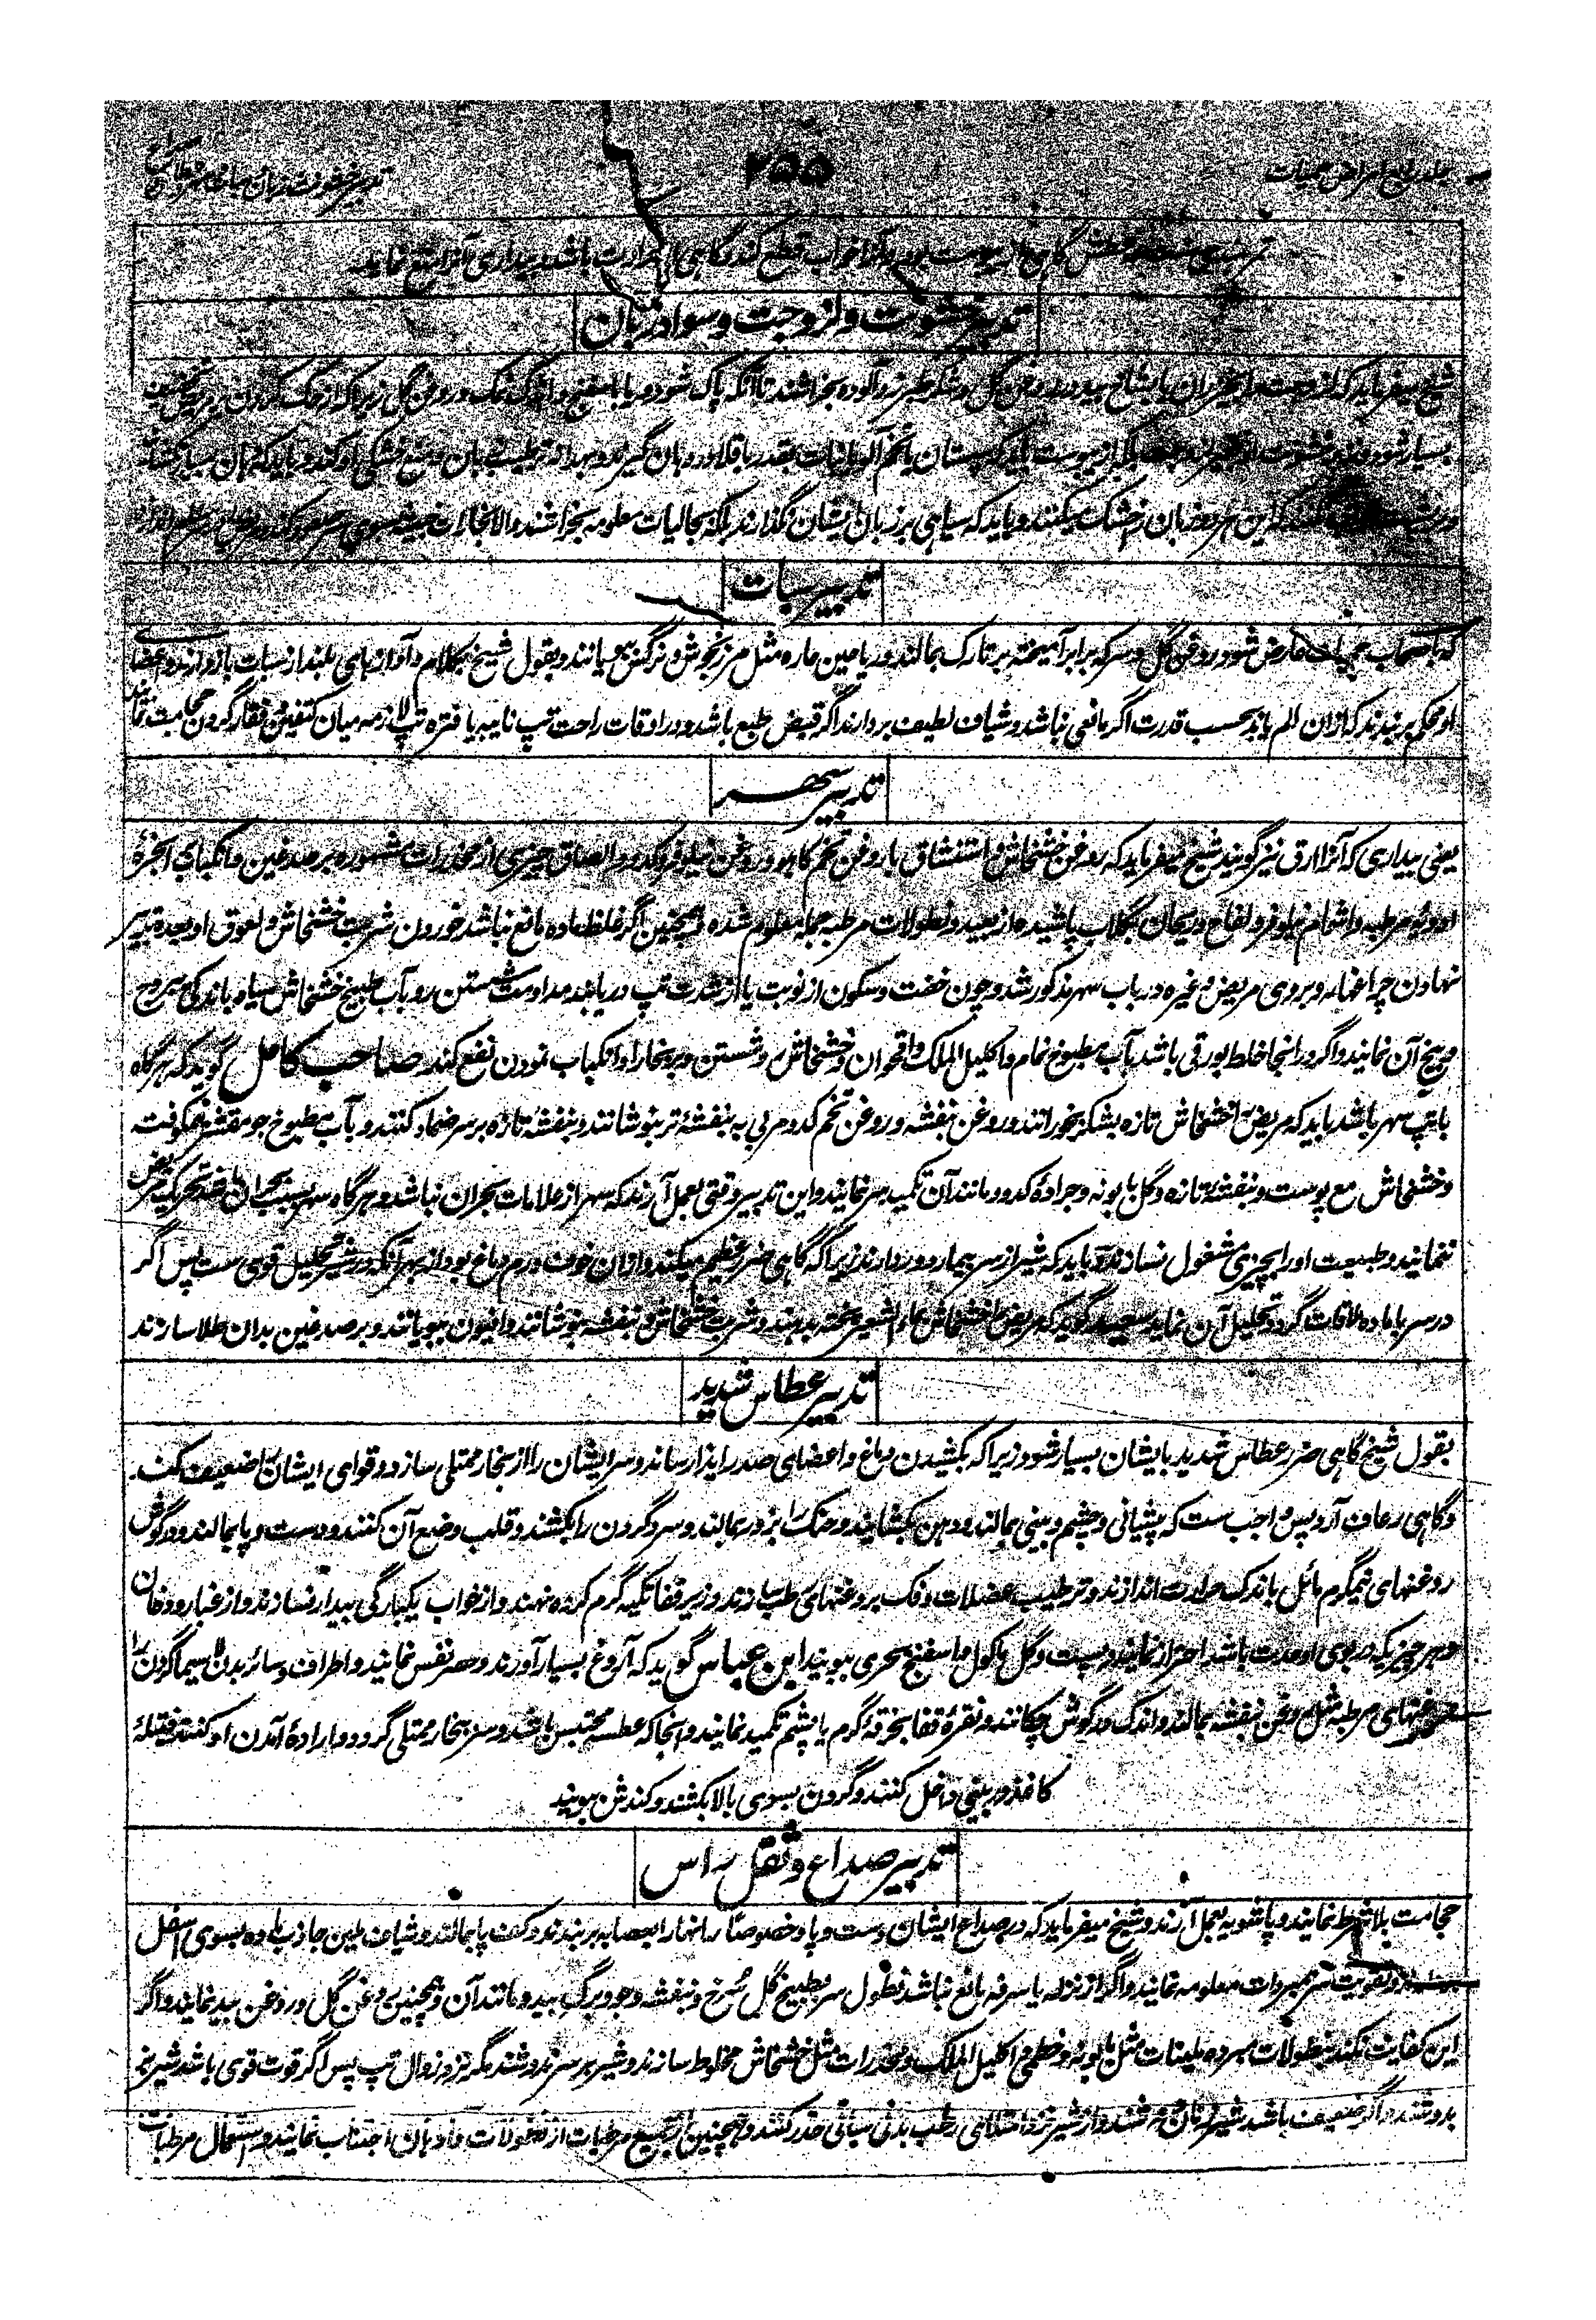 جلد رابع امراض حمیات
۲۵۵
گاهی از یبوست بود و آنرا خواب قطع کند و گاهی از حرارت باشد و بیداری آنرا منع نماید
تدبیر خشونت و لزوجت و سواد زبان
شیخ میفرماید که لزوجت را بخیزران یا بشاخ بید در روغن گل و شکر طبرزد آلوده بخراشند تا آنکه پاک شود و یا باسفنج و اندک نمک و روغن گل زیرا که از حک کردن
بسیار شود و نیز خشونت از یبوست باید که سپستان یا تخم آلو یا نبات بقدر باقلا در دهان گیرند
این هر دو زبان را خشک میکنند و باید که سیاهی بر زبان ایشان نگذارند بلکه بجالیات معلومه بخراشند والا بخارات خبیثه بسوی سر صعود کند
تدبیر سبات
که باصحاب حمیات عارض شود روغن گل و سرکه برابر آمیخته بر تارک بمالند و ریاحین حاره مثل مرزنجوش و نرگس ببویانند و بقول شیخ بکلام و آوازهای بلند از سبات باز دارند و اعضای
او محکم بربندند که ازان الم یابد بحسب قدرت اگر مانعی نباشد و شیاف لطیف بردارند اگر قبض طبع باشد و در اوقات راحت تپ نائبه یا فتره تپ لازمه میان کتفین و فقار گردن حجامت
تدبیر سهر
یعنی بیداری که آنرا ارق نیز گویند شیخ میفرماید که روغن خشخاش و استنشاق با روغن تخم کاهو و روغن نیلوفر و کدو و الصاق چیزی از مخدرات مشهوره بر صدغین و انکباب ابخرهٔ
ادویهٔ مرطبه و اشمام نیلوفر و لفاح و ریحان بگلاب پاشیده از بعید و نطولات مرطبه جمله معلوم شده و همچنین اگر غلظ ماده مانع نباشد خوردن شربت خشخاش و لعوق او بعده تدبیر
نهادن چراغ خانه و بروی مریض و غیره در باب سهر مذکور شد و چون خفت و سکون از نوبت یا از شدت تپ دریابند مداومت شستن رو بآب طبیخ خشخاش سیاه با اندکی بیروج
و بیخ آن نمایند و اگر در آنجا خلط بورقی باشد بآب مطبوخ نمام و اکلیل الملک و اقحوان و خشخاش رو شستن و بر بخار او انکباب نمودن نفع کند صاحب کامل گوید که هرگاه
با تپ سهر باشد باید که مریض را خشخاش تازه بشکر بخورانند و روغن بنفشه و روغن تخم کدو مربی به بنفشهٔ تر بنوشانند و بنفشهٔ تازه بر سر ضماد کنند و بآب مطبوخ جو مقشر نیمکوفته
و خشخاش مع پوست و بنفشهٔ تازه و گل بابونه و جرادهٔ کدو و مانند آن تکمید سر نمایند و این تدبیر وقتی بعمل آرند که سهر از علامات بحران نباشد و هرگاه سهر بسبب بحران باشد تحریک مریض
ننمایند و طبیعت او را بچیزی مشغول نسازند و باید که شیر از سر بیمار دور دارند زیرا که گاهی ضرر عظیم میکند و ازان خوف ورم دماغ بود از بهر آنکه در شیر تحلیل قوی ست پس اگر
در سر با ماده ملاقات گردد تحلیل آن نماید سعید گوید که مریض را خشخاش بماء الشعیر پخته بدهند و شربت خشخاش و بنفشه بنوشانند و افیون ببویانند و بر صدغین بدان طلا سازند
تدبیر عطاس شدید
بقول شیخ گاهی ضرر عطاس شدید بایشان بسیار شود زیرا که بکشیدن دماغ و اعضای صدر ایذا رساند و سر ایشان را از بخار ممتلی سازد و قوای ایشان را ضعیف کند
و گاهی رعاف آرد پس واجب ست که پیشانی و چشم و بینی بمالند و دهن بکشایند و حنک را بزور بمالند و سر و گردن را بکشند و قلب وضع آن کنند و دست و پا بمالند و در گوش
روغنهای نیمگرم مائل باندک حرارت اندازند و ترطیب عضلات و فک بروغنهای رطب سازند و زیر قفا تکیه گرم کرده نهند و از خواب یکبارگی بیدار نسازند و از غبار و دخان
و هر چیز که در بوی او حدت باشد احتراز نمایند و سپت و گل ماکول و اسفنج بحری ببویند ابن عباس گوید که آروغ بسیار آورند و حصر نفس نمایند و اطراف و سائر بدن لا سیما گردن را
بروغنهای مرطبه مثل روغن بنفشه بمالند و اندک در گوش چکانند و نقرهٔ قفا بخرقهٔ گرم یا پشم تکمید نمایند و آنجا که عطسه محتبس باشد و سر ببخار ممتلی گردد و ارادهٔ آمدن او کنند فتیلهٔ
کاغذ در بینی داخل کنند و گردن بسوی بالا بکشند و کندش ببویند
تدبیر صداع و ثقل راس
حجامت بلاشرط نمایند و پاشویه بعمل آرند و شیخ میفرماید که در صداع ایشان دست و پا و خصوصاً رانها را بعصابه بربندند و کف پا بمالند و شیاف ملین جاذب ماده بسوی اسفل
و تقویت سر بمبردات معلومه نمایند و اگر از نزله یا سرفه مانع نباشد نطول سر بطبیخ گل سرخ و بنفشه و جو و برگ بید و مانند آن و همچنین بروغن گل و روغن بید نمایند و اگر
این کفایت نکند بنطولات مبرده ملینات مثل بابونه و خطمی و اکلیل الملک و مخدرات مثل خشخاش مخلوط سازند و شیر بر سر ندوشند مگر نزد زوال تپ پس اگر قوت قوی باشد شیر بز
بدوشند و اگر ضعیف باشد شیر زنان بدوشند و از شیر نزد امتلای رطب بدنی سباتی حذر کنند و همچنین از جمیع مرطبات از نطولات و ادهان اجتناب نمایند و استعمال مرطبات